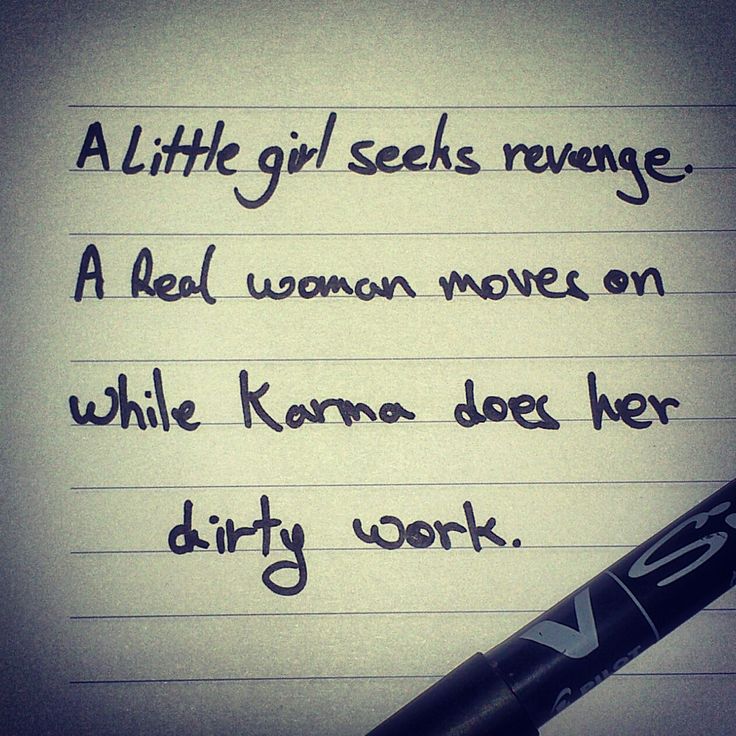 A Little girl seeks revenge.
A Real woman moves on
while Karma does her
dirty work.
PILOT